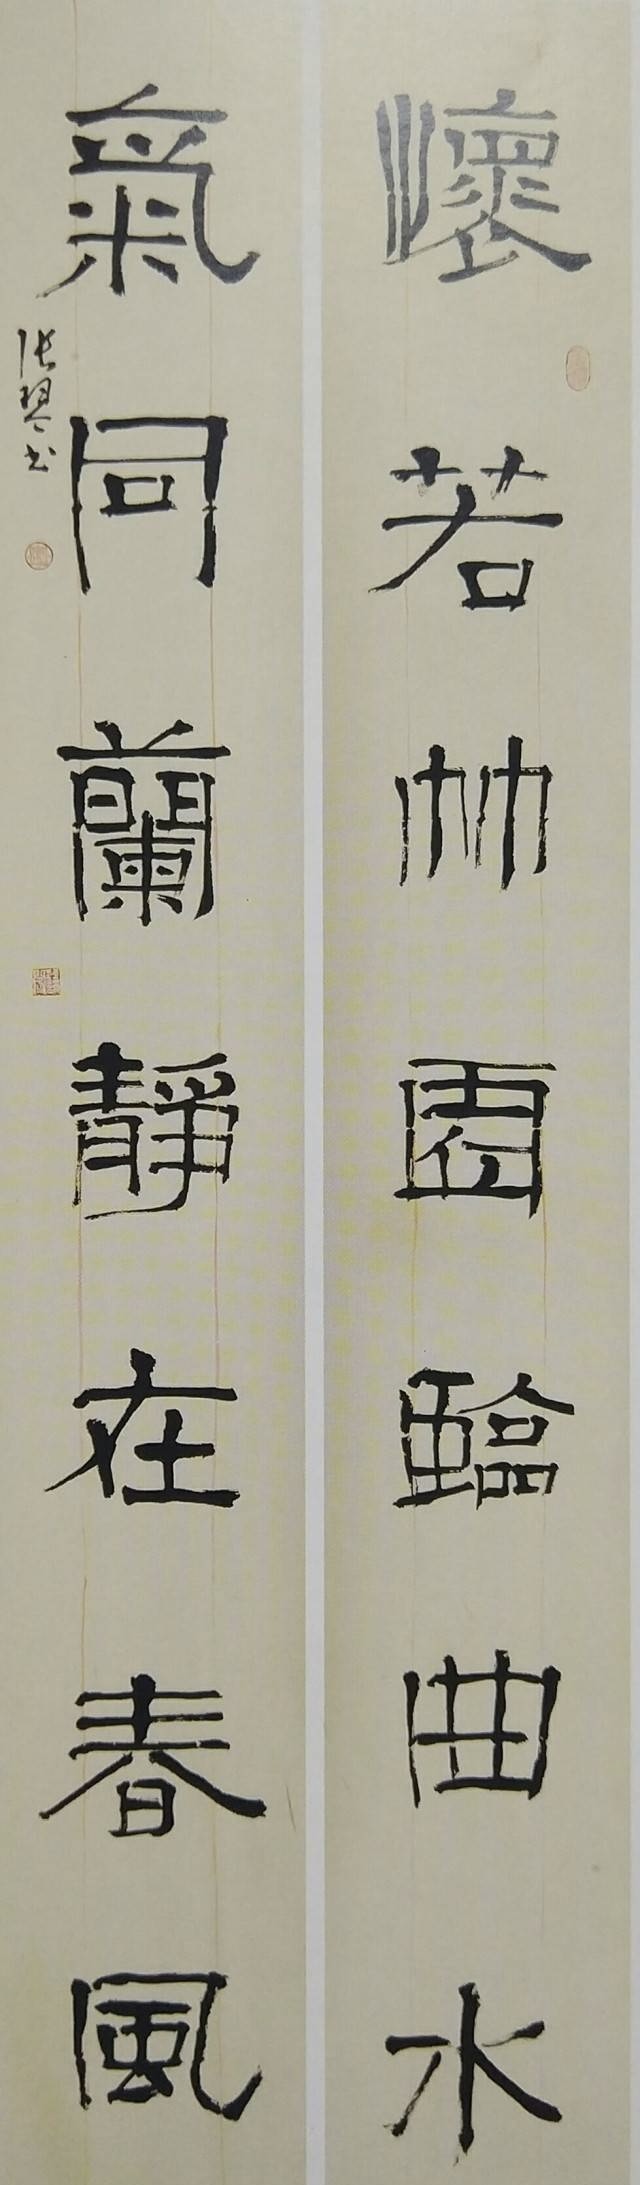 懷若竹園臨曲水
氣同蘭靜在春風
張琴書